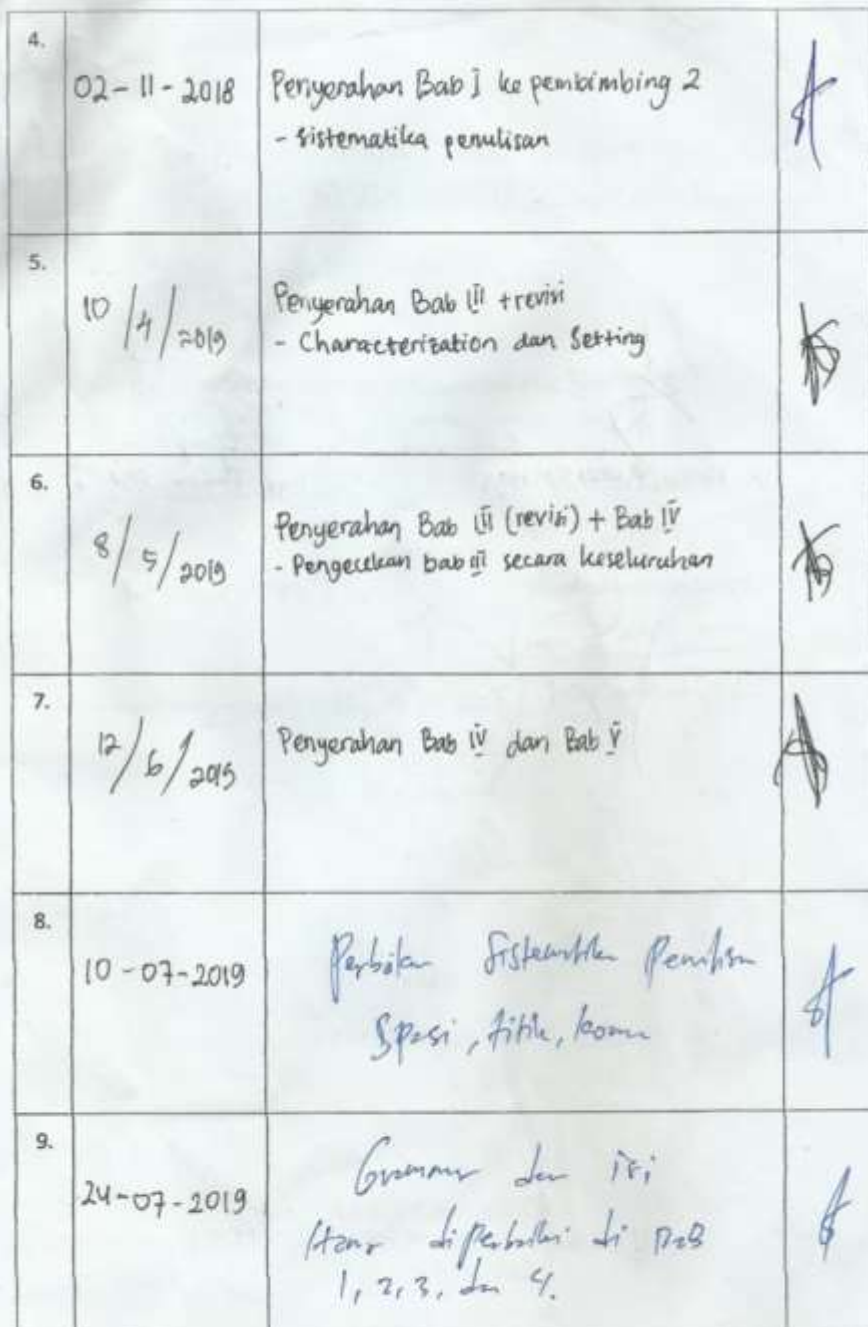 4.
02-11-2018
Penyerahan Bab I ke pembimbing 2
- sistematika penulisan
5.
10/4/2019
Penyerahan Bab III + revisi
- Characterization dan Setting
6.
8/5/2019
Penyerahan Bab III (revisi) + Bab IV
- Pengecekan bab III secara keseluruhan
7.
12/6/2019
Penyerahan Bab IV dan Bab V
8.
10-07-2019
Perbaikan Sistematika Penulisan
Spasi, titik, koma
9.
24-07-2019
Grammar dan isi
Harus diperbaiki di BAB
1, 2, 3, dan 4.